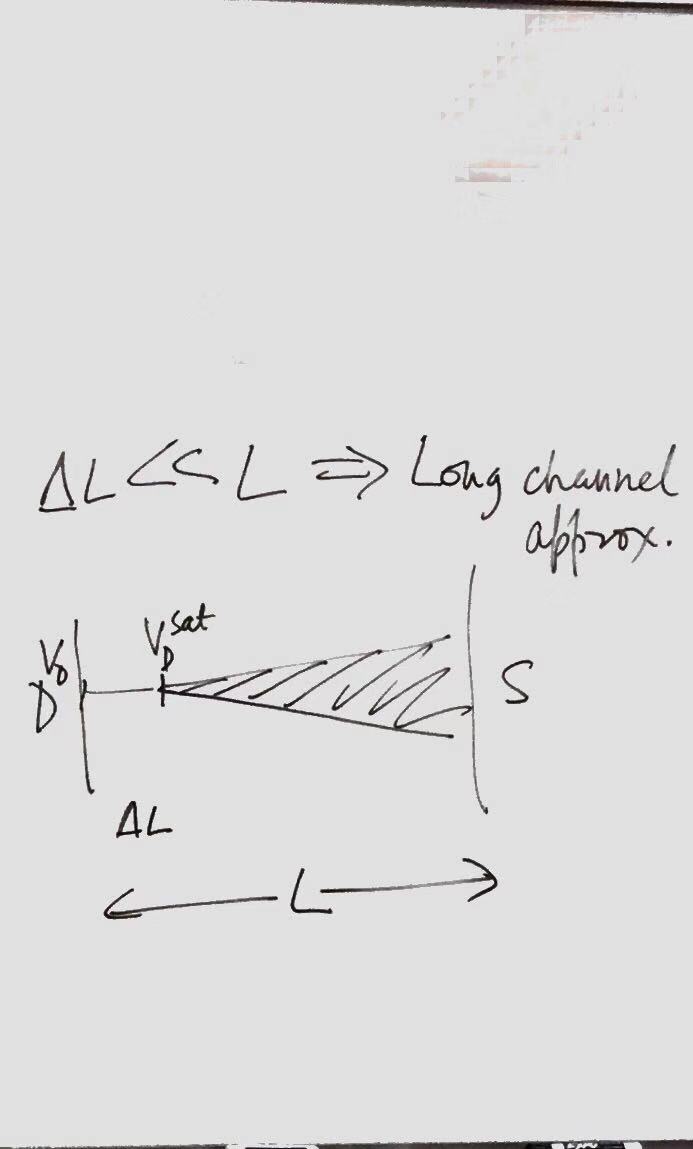 ΔL << L ⇒ Long channel
approx.
V_D^sat
V_D
D
S
ΔL
L